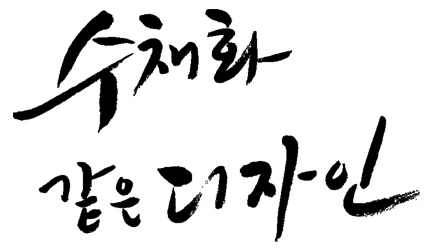 수채화
같은 디자인